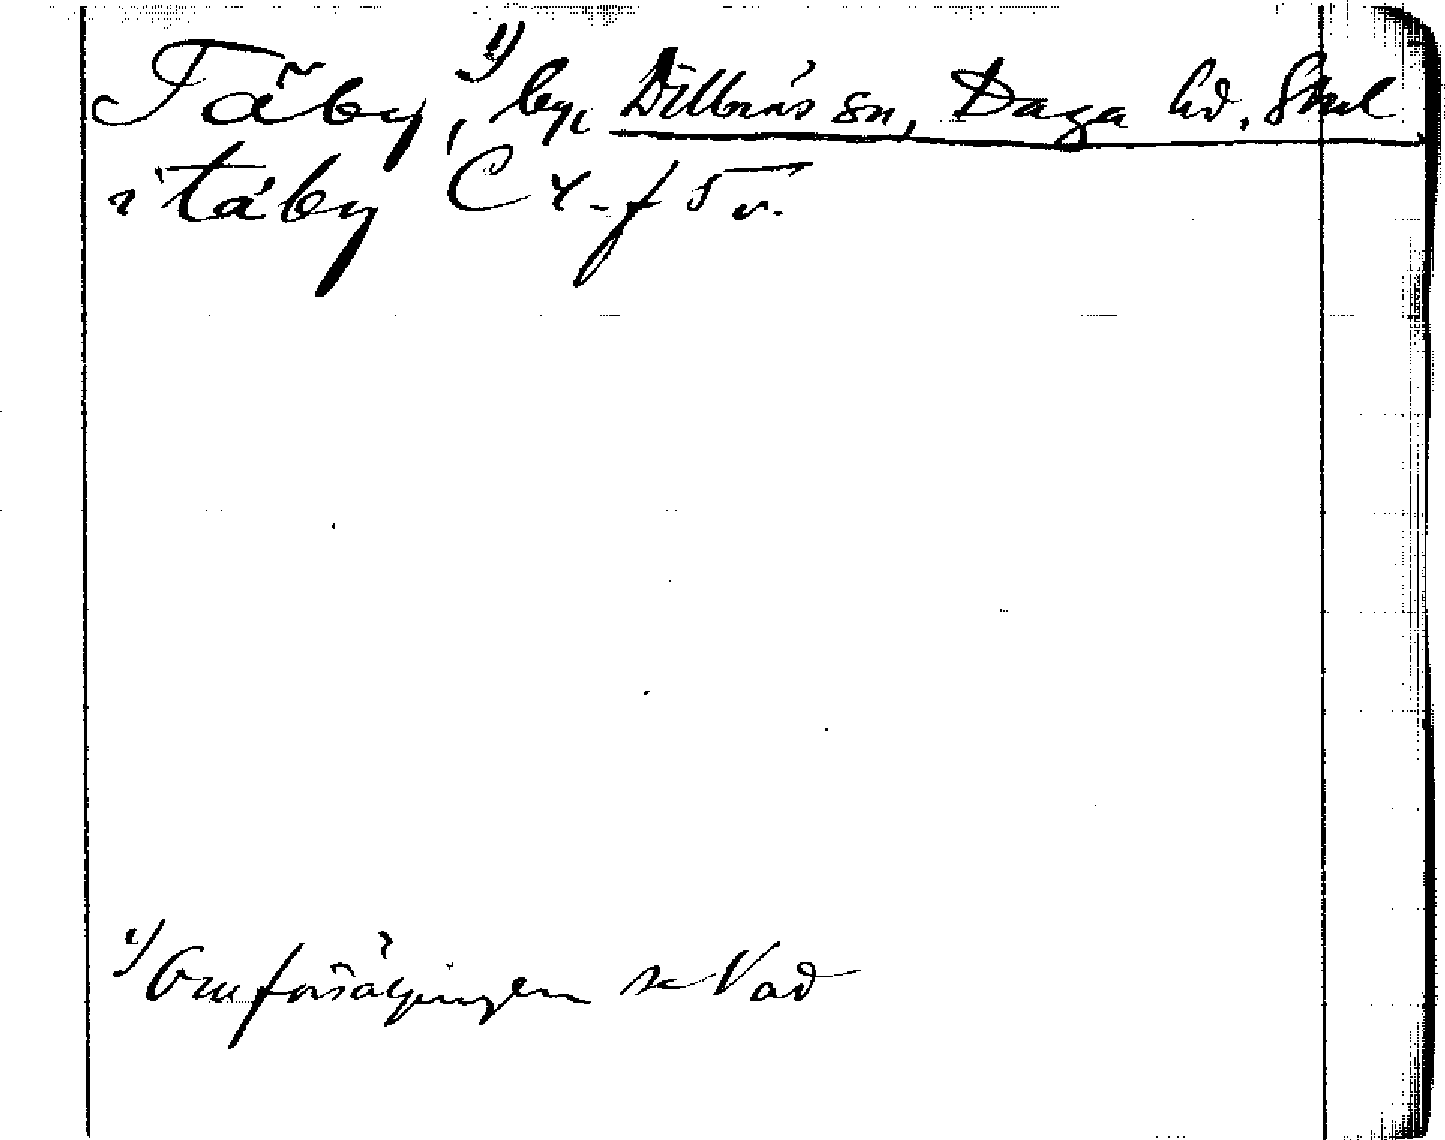 Täby,¹⁾ by, Dillnäs sn, Daga hd, Sml
i táby C 4 f 5 v.
¹⁾ Om försäljningen se Vad